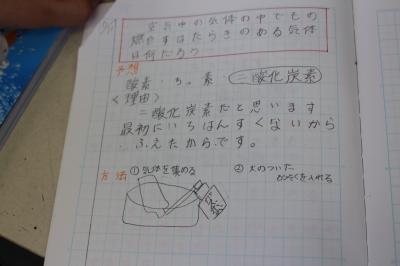 空気中の気体の中でもの
燃やすはたらきのある気体
は何だろう
予想
酸素 ちっ素 二酸化炭素
〈理由〉
二酸化炭素だと思います
最初にいちばんすくないから
、ふえたからです。
方法 ①気体を集める ②火のついた
を入れる